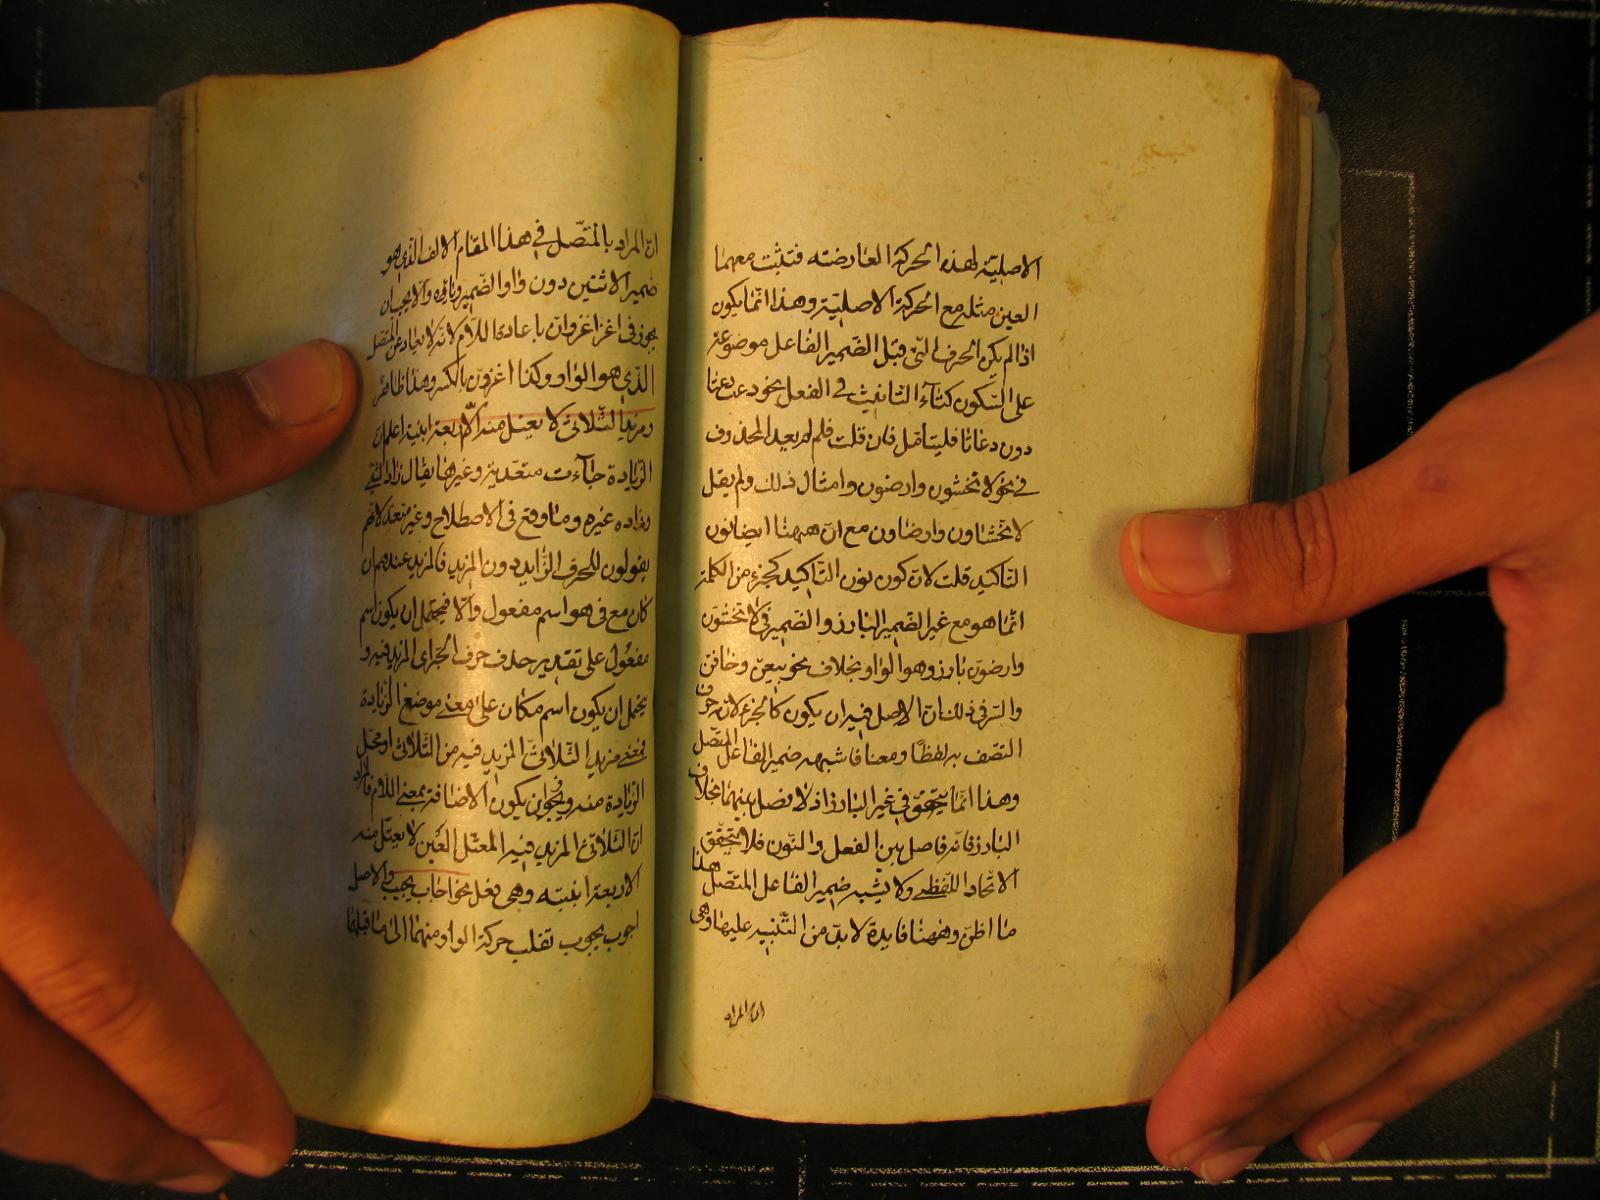 الاصليّة لهذه الحركة العارضته فتثبت معهما
العين مثله مع الحركة الاصليّة وهذا انّما يكون
اذا لم يكن الحرف الّتى قبل الضمير الفاعل موضوعة
على السّكون كتآء التانيث فى الفعل نحو دعت دعتا
دون دعاتا فليتامّل فان قلت فلم لم يعد المحذوف
فى نحو لا تخشون وارضون وامثال ذلك ولم يقل
لا تخشاون وارضاون مع انّ ههنا ايضا نون
التاكيد قلت لان كون نون التّاكيد كجزء من الكلمة
انّما هو مع غير الضمير البارز والضمير فى لا تخشون
وارضون بارز وهو الواو بخلاف نحو بيعن وخافن
والسّر فى ذلك انّ الاصل فيه ان يكون كالجزء لانه حرف
التصف به لفظًا ومعنا فاشبه ضمير الفاعل المتّصل
وهذا انّما يتحقق فى غير البارز اذ لا فصل بينهما بخلاف
البارز فانّه فاصل بين الفعل والنّون فلا يتحقّق
الاتّحاد اللّفظى ولا يشبه ضمير الفاعل المتّصل هذا
ما اظنّ وههنا فايدة لا بدّ من التّنبيه عليها وهى
انّ المراد
انّ المراد بالمتّصل فى هذا المقام الالف الّذى هو
ضمير الاثنين دون واو الضّمير ويائه والا يجب ان
يجوز فى اغز اغزوانّ باعادة اللّام لانّه لا يعاد عن المتّصل
الّذى هو الواو وكذا اغزونّ بالكسر وهذا ظاهر
ومزيد الثّلاثى لا يعتل منه الّا اربعة ابنية اعلم انّ
الزّيادة جاءت متعدية وغيرها يقال زاد الشّئ
وزاده غيره وما وقع فى الاصطلاح وغير متعد لانّهم
يقولون للحرف الزّايد دون المزيد فالمزيد عندهم ان
كان مع فى هو اسم مفعول والّا فيحتمل ان يكون اسم
مفعول على تقدير حذف حرف الجرّ اى المزيد فيه و
يحتمل ان يكون اسم مكان على معنى موضع الزّيادة
فمعنى مزيد الثّلاثىّ المزيد فيه من الثّلاثى او محلّ
الزّيادة منه ويجوز ان يكون الاضافة بمعنى اللّام فالمراد
انّ الثّلاثى المزيد فيه المعتّل العين لا يعتلّ منه
الا اربعة ابنيته وهى فعل نحو اجاب يجيب والاصل
اجوب يجوب تقلب حركة الواو منهما الى ما قبلها